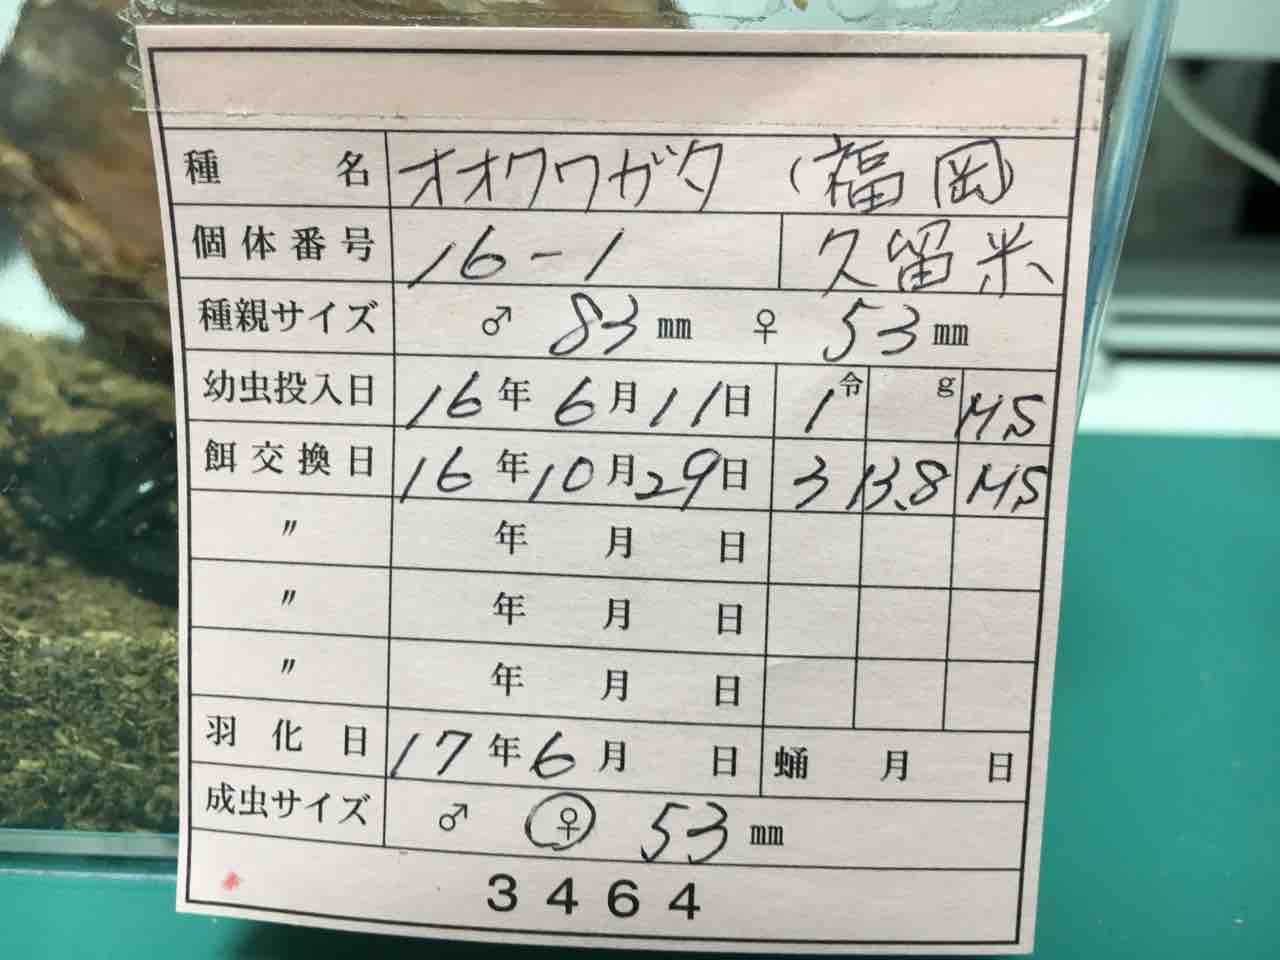 種名 オオクワガタ (福岡)
個体番号 16-1 久留米
種親サイズ ♂ 83 mm ♀ 53 mm
幼虫投入日 16年6月11日 1令 g MS
餌交換日 16年10月29日 3 13.8 MS
〃 年 月 日
〃 年 月 日
〃 年 月 日
羽化日 17年6月 日 蛹 月 日
成虫サイズ ♂ ♀ 53 mm
3464